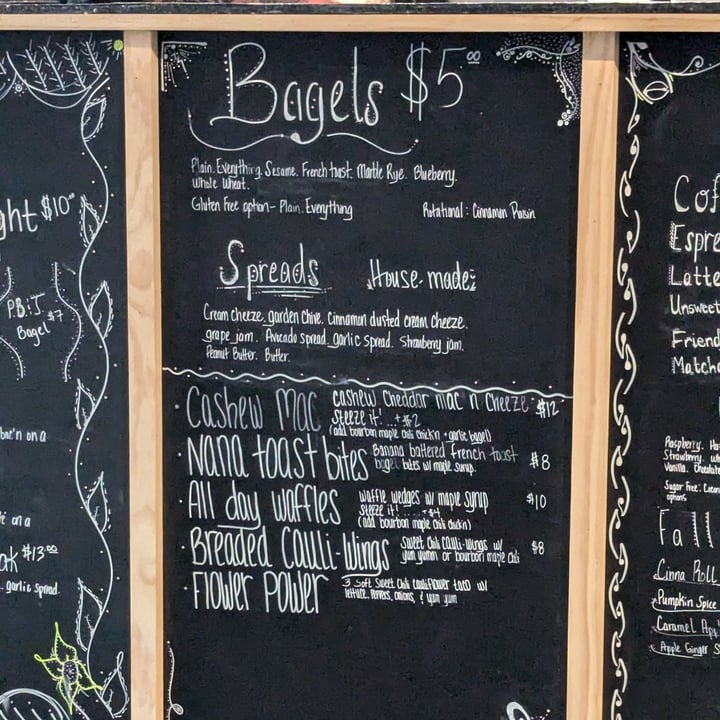 ght $10⁰⁰
P.B.:J.
Bagel $7
on a
on a
ak $13⁰⁰
garlic spread.
Bagels $5⁰⁰
Plain. Everything. Sesame. French toast. Marble Rye. Blueberry.
Whole Wheat.
Gluten Free option- Plain. Everything
Rotational: Cinnamon Raisin
Spreads
House-made:
Cream cheeze. garden chive. Cinnamon dusted cream cheeze.
grape jam. Avocado spread. garlic spread. Strawberry jam.
Peanut Butter. Butter.
Cashew Mac cashew cheddar mac n cheeze $12
Steeze it! ...+$2
(add bourbon maple chili chick'n + garlic bagel)
Nana toast bites Banana battered french toast $8
bagel bites w/ maple syrup.
All day waffles waffle wedges w/ maple syrup $10
Steeze it! .......+$4
(add bourbon maple chili chick'n)
Breaded Cauli-Wings Sweet chili cauli-wings w/ $8
yum yumm or bourbon maple chili
Flower Power 3 soft sweet chili cauliflower taco w/
lettuce, peppers, onions, & yum yum
Cof
Espre
Latte
Unsweet
Friend
Matcha
Raspberry. Ha
Strawberry. wh
Vanilla. Chocolate
Sugar Free:
options
Fall
Cinna Roll
Pumpkin Spice
Caramel App
Apple Ginger S